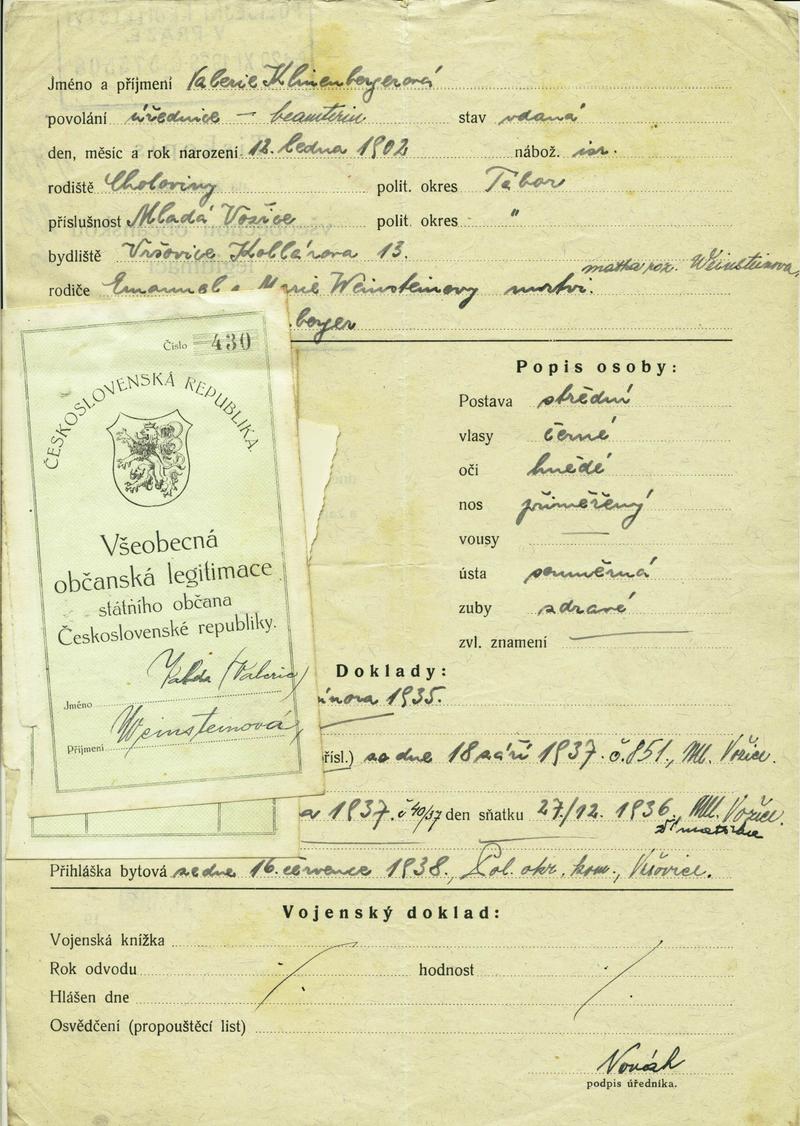 Jméno a příjmení Valerie Klinenbergerová
povolání úřednice – beamterin stav vdaná
den, měsíc a rok narození 12. ledna 1902 nábož. isr.
rodiště Choloviny polit. okres Tábor
příslušnost Mladá Vožice polit. okres "
bydliště Vršovice Kollárova 13.
matka roz. Weinsteinova,
rodiče Emanuel a Marie Weinsteinovy mrtvi.
berger
Číslo 430
ČESKOSLOVENSKÁ REPUBLIKA
Všeobecná
občanská legitimace
státního občana
Československé republiky.
Jméno Valda (Valerie)
Příjmení Weinsteinová
Popis osoby:
Postava střední
vlasy černé
oči hnědé
nos přiměřený
vousy —
ústa souměrná
zuby zdravé
zvl. znamení —
Doklady:
února 1935.
řísl.) ze dne 18 září 1937. č. 851., Ml. Vožice.
a 1937. č 40/37 den sňatku 27./12. 1936., Ml. Vožice.
Přihláška bytová ze dne 16. července 1938., Pol. okr. kom., Vršovice.
Vojenský doklad:
Vojenská knížka
Rok odvodu hodnost
Hlášen dne
Osvědčení (propouštěcí list)
Novák
podpis úředníka.